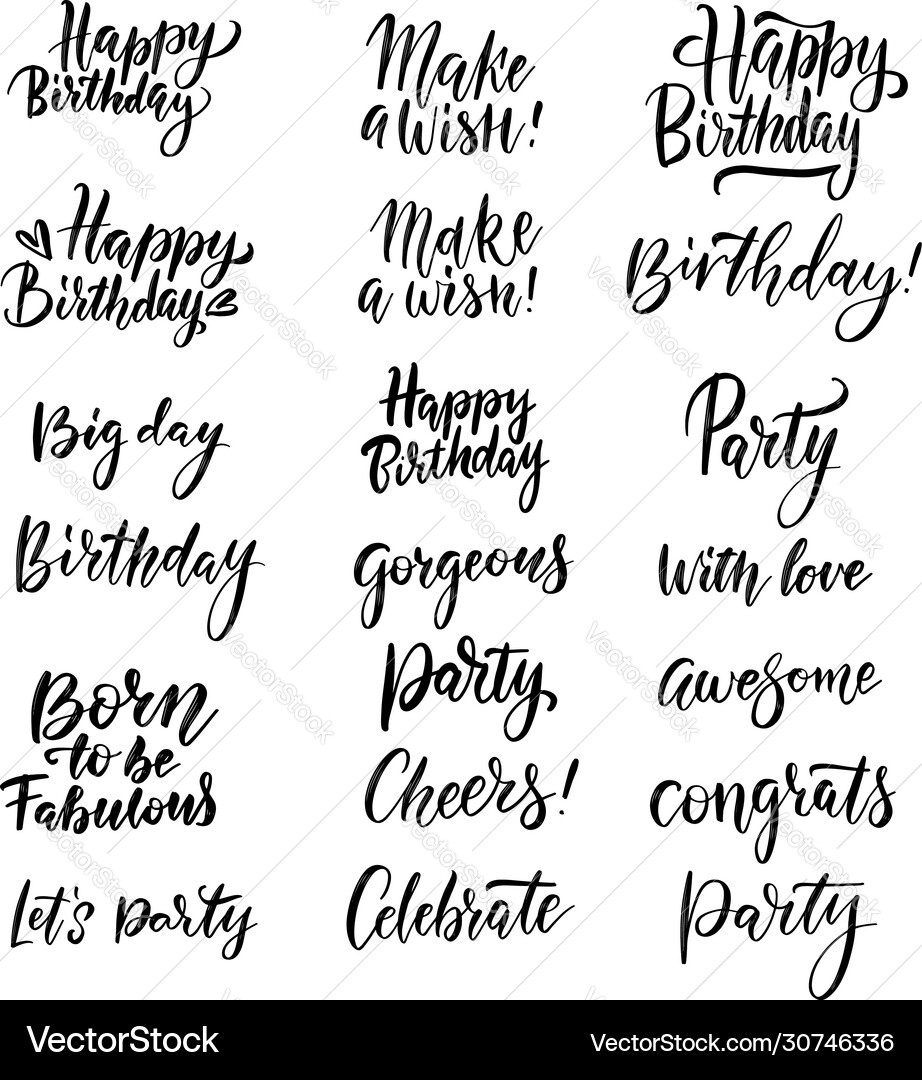 Happy
Birthday
Make
a wish!
Happy
Birthday
Happy
Birthday
Make
a wish!
Birthday!
Big day
Happy
Birthday
Party
Birthday
Gorgeous
With love
Born
to be
Fabulous
Party
awesome
Cheers!
congrats
Let's party
Celebrate
party
VectorStock®
VectorStock.com/30746336